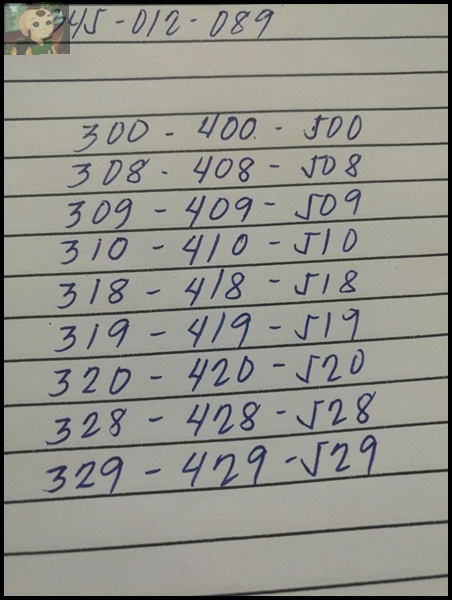 345-012-089
300 - 400 - 500
308 - 408 - 508
309 - 409 - 509
310 - 410 - 510
318 - 418 - 518
319 - 419 - 519
320 - 420 - 520
328 - 428 - 528
329 - 429 - 529